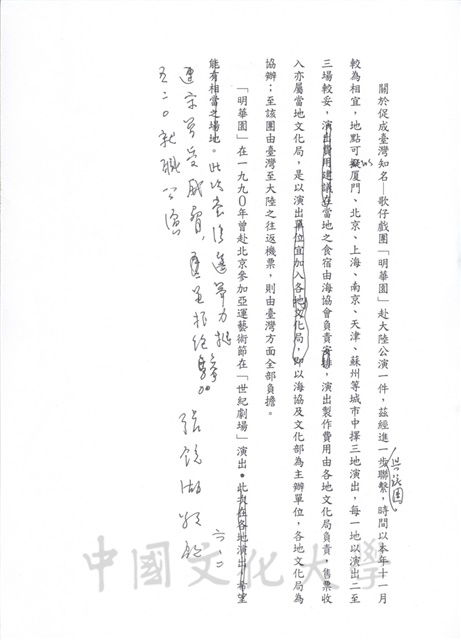 關於促成臺灣知名—歌仔戲團「明華園」赴大陸公演一件，茲經進一步聯繫，時間以本年十一月
與該團
較為相宜，地點可擬廈門、北京、上海、南京、天津、蘇州等城市中擇三地演出，每一地以演出二至
三場較妥，演出費用建議在當地之食宿由海協會負責安排，演出製作費用由各地文化局負責，售票收
入亦屬當地文化局，是以演出單位宜加入各地文化局，即以海協及文化部為主辦單位，各地文化局為
協辦；至該團由臺灣至大陸之往返機票，則由臺灣方面全部負擔。
「明華園」在一九九０年曾赴北京參加亞運藝術節在「世紀劇場」演出。此次在各地演出，希望
能有相當之場地。此次
五二０就職公演
張鏡湖
六、二
中國文化大學